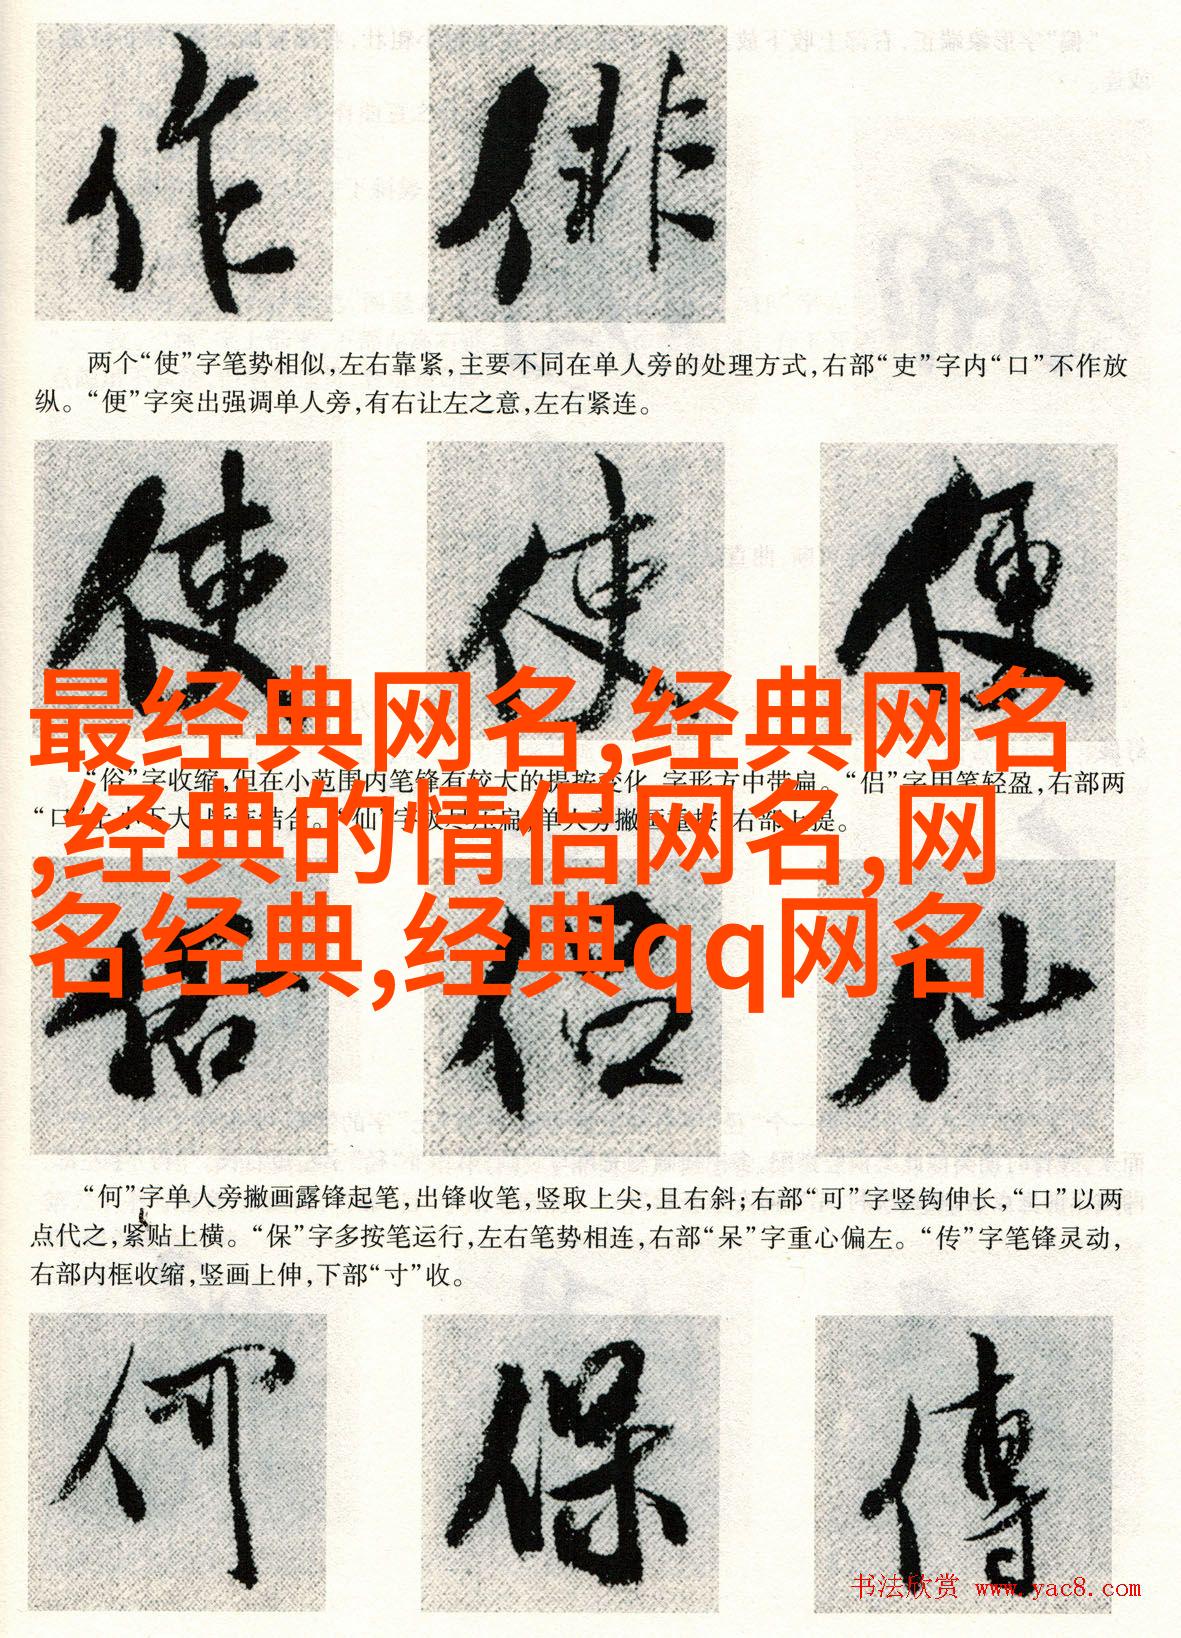 作 俳
两个“使”字笔势相似,左右靠紧,主要不同在单人旁的处理方式,右部“吏”字内“口”不作放
纵。“便”字突出强调单人旁,有右让左之意,左右紧连。
使 使 便
最经典网名,经典网名
“俗”字收缩,但在小范围内笔锋有较大的提按变化,字形方中带扁。“侣”字用笔轻盈,右部两
,经典的情侣网名,网
“口”上小下大 结合。“仙”字 压扁,单人旁撇画重按,右部上提。
名经典,经典qq网名
俗 侣 仙
“何”字单人旁撇画露锋起笔,出锋收笔,竖取上尖,且右斜;右部“可”字竖钩伸长,“口”以两
点代之,紧贴上横。“保”字多按笔运行,左右笔势相连,右部“呆”字重心偏左。“传”字笔锋灵动,
右部内框收缩,竖画上伸,下部“寸”收。
何 保 傳
书法欣赏 www.yac8.com